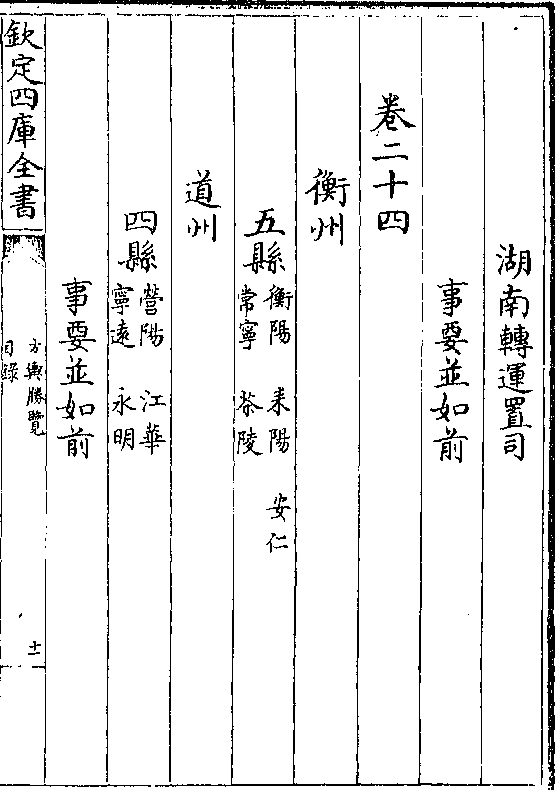 湖南轉運置司
事要並如前
卷二十四
衡州
五縣衡陽 耒陽 安仁
常寧 茶陵
道州
四縣營陽 江華
寧遠 永明
事要並如前
欽定四庫全書
方輿勝覽
目錄
十一